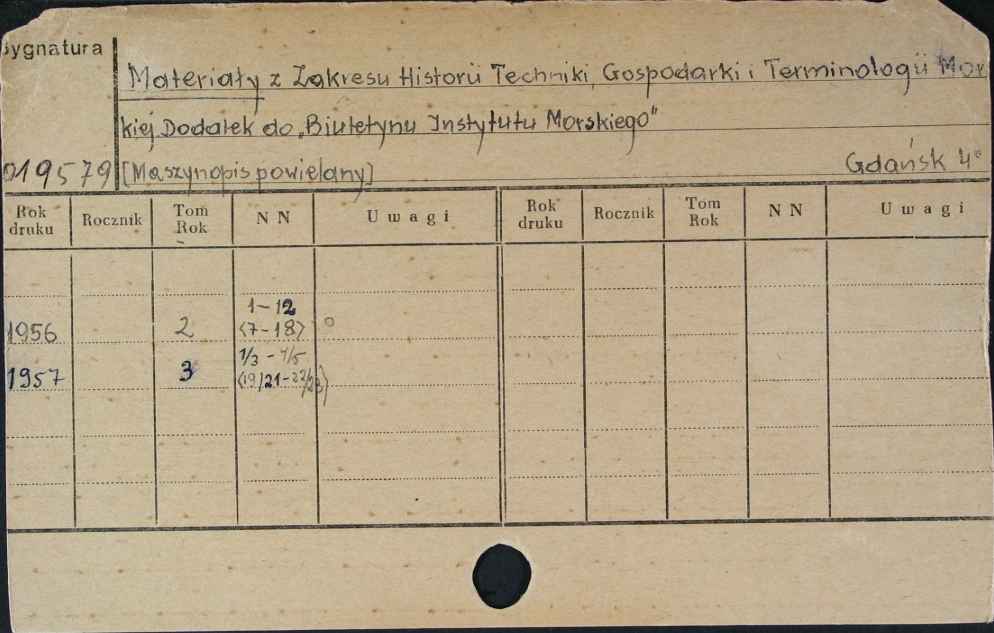 Sygnatura
Materiały z Zakresu Historii Techniki, Gospodarki i Terminologii Mor
kiej. Dodatek do „Biuletynu Instytutu Morskiego"
019579 [Maszynopis powielany] Gdańsk 4°
Rok druku Rocznik Tom Rok NN Uwagi Rok druku Rocznik Tom Rok NN Uwagi
1-12
1956 2 <7-18> o
1/3 - 4/5
1957 3 <19/21-22/23>